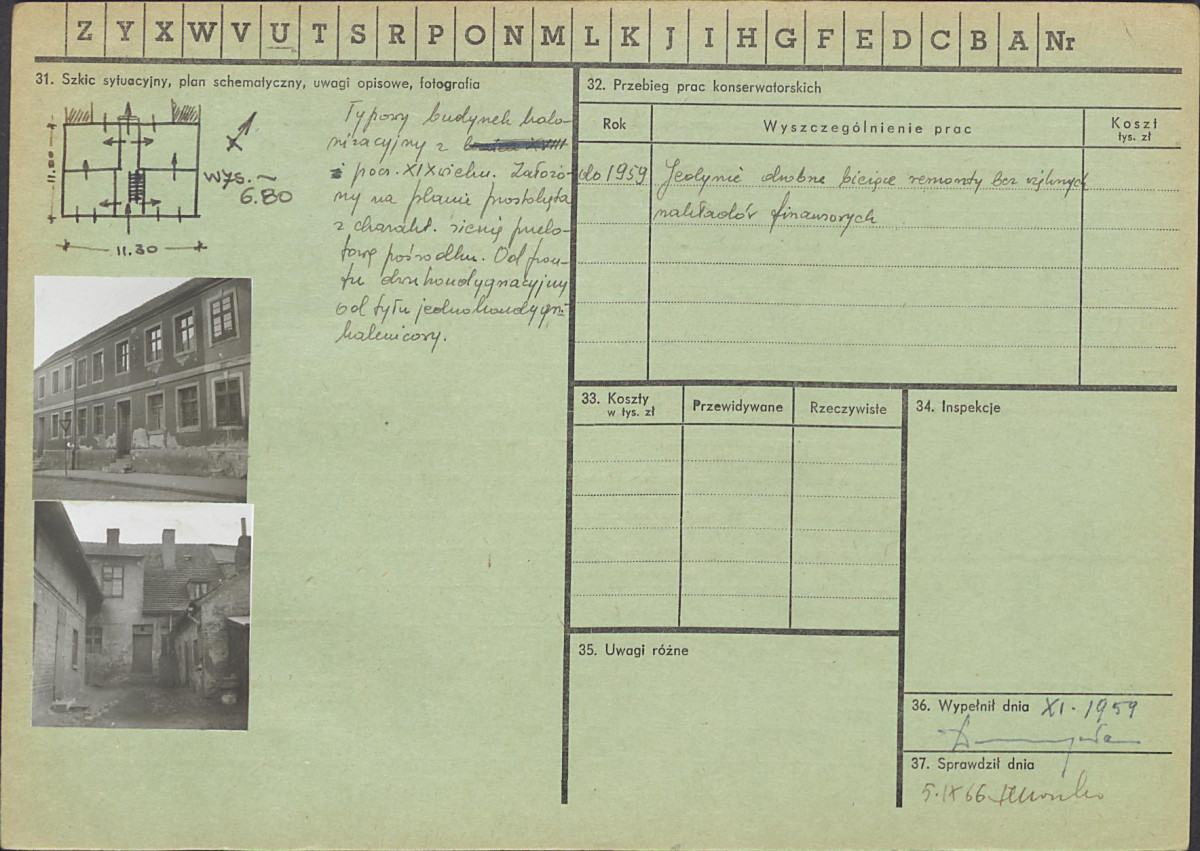 Z Y X W V U T S R P O N M L K J I H G F E D C B A Nr
31. Szkic sytuacyjny, plan schematyczny, uwagi opisowe, fotografia
11.00
wys. ~
6.80
11.30
Typowy budynek kolo-
nizacyjny z
z pocz. XIX wieku. Założo-
ny na planie prostokąta
z charakt. sienią przelo-
tową pośrodku. Od fron-
tu dwukondygnacyjny
od tyłu jednokondygn.
kalenicowy.
32. Przebieg prac konserwatorskich
Rok
Wyszczególnienie prac
Koszt
tys. zł
do 1959 Jedynie drobne bieżące remonty bez
nakładów finansowych
33. Koszty
w tys. zł
Przewidywane
Rzeczywiste
34. Inspekcje
35. Uwagi różne
36. Wypełnił dnia XI. 1959
37. Sprawdził dnia
5.IX 66